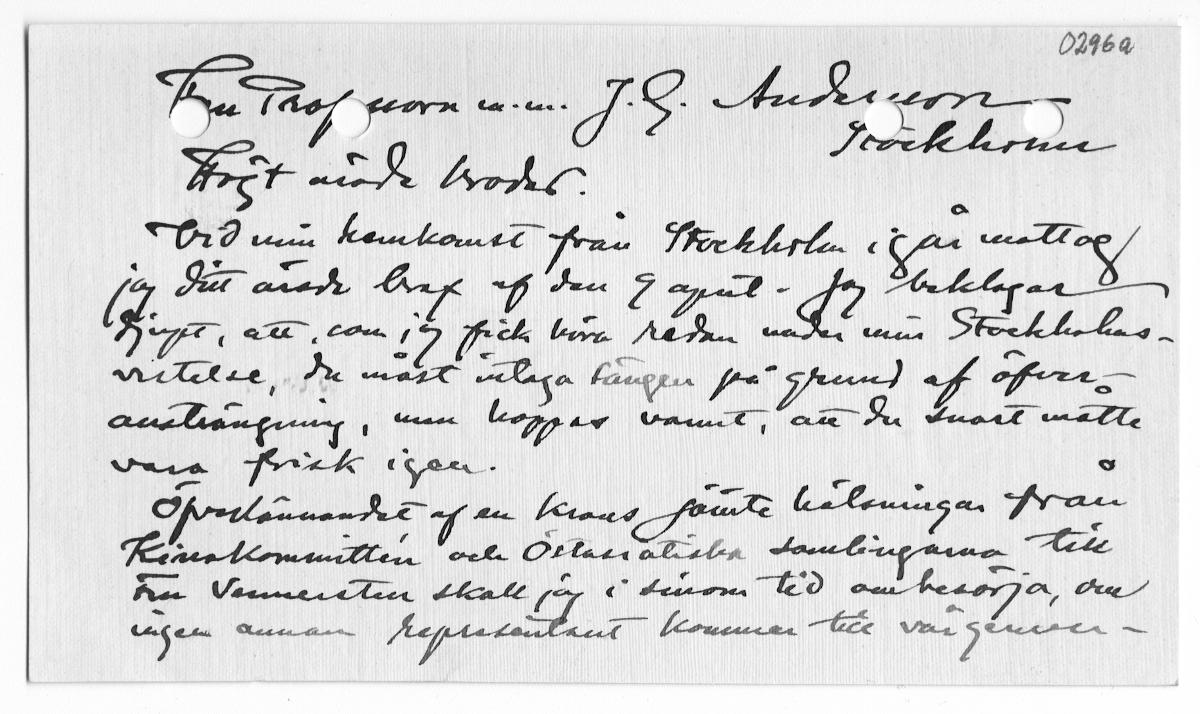 0296a
Herr Professorn m.m. J. G. Andersson
Stockholm
Högt ärade broder.
Vid min hemkomst från Stockholm igår mottog
jag ditt ärade bref af den 9 april. Jag beklagar
djupt, att, som jag fick höra redan under min Stockholms-
vistelse, du måst intaga sängen på grund af öfver-
ansträngning, men hoppas varmt, att du snart måtte
vara frisk igen.
Öfverlämnandet af en krans jämte hälsningar från
Kinakommittén och Östasiatiska samlingarna till
Fru Vennersten skall jag i sinom tid ombesörja, om
ingen annan representant kommer till vår gemen-